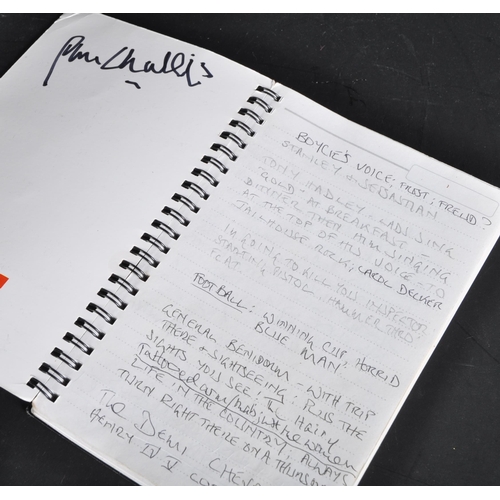 John Challis
BOYCIE'S VOICE - FROST : FREUD?
STANLEY & SEBASTIAN
TONY HADLEY - LADS SING
'GOLD' AT BREAKFAST -
DITTHER THEN HIM SINGING
AT THE TOP OF HIS VOICE TO
JAILHOUSE ROCK; CAROL DECKER
I'M GOING TO KILL YOU INSPECTOR
STARTING PISTOL. HAMMER THRO
FLAT
FOOTBALL: WINNING CUP: HORRID
BLUE MAN
GENERAL BENIDORM - WITH TRIP
THERE & SIGHTSEEING: PLUS THE
SIGHTS YOU SEE: The HAIRY
Tattooed arms/habits the women
LIFE IN THE COUNTRY; ALWAYS
TURN RIGHT THERE ON A THURSDAY
THE DEWI
HENRY IV V